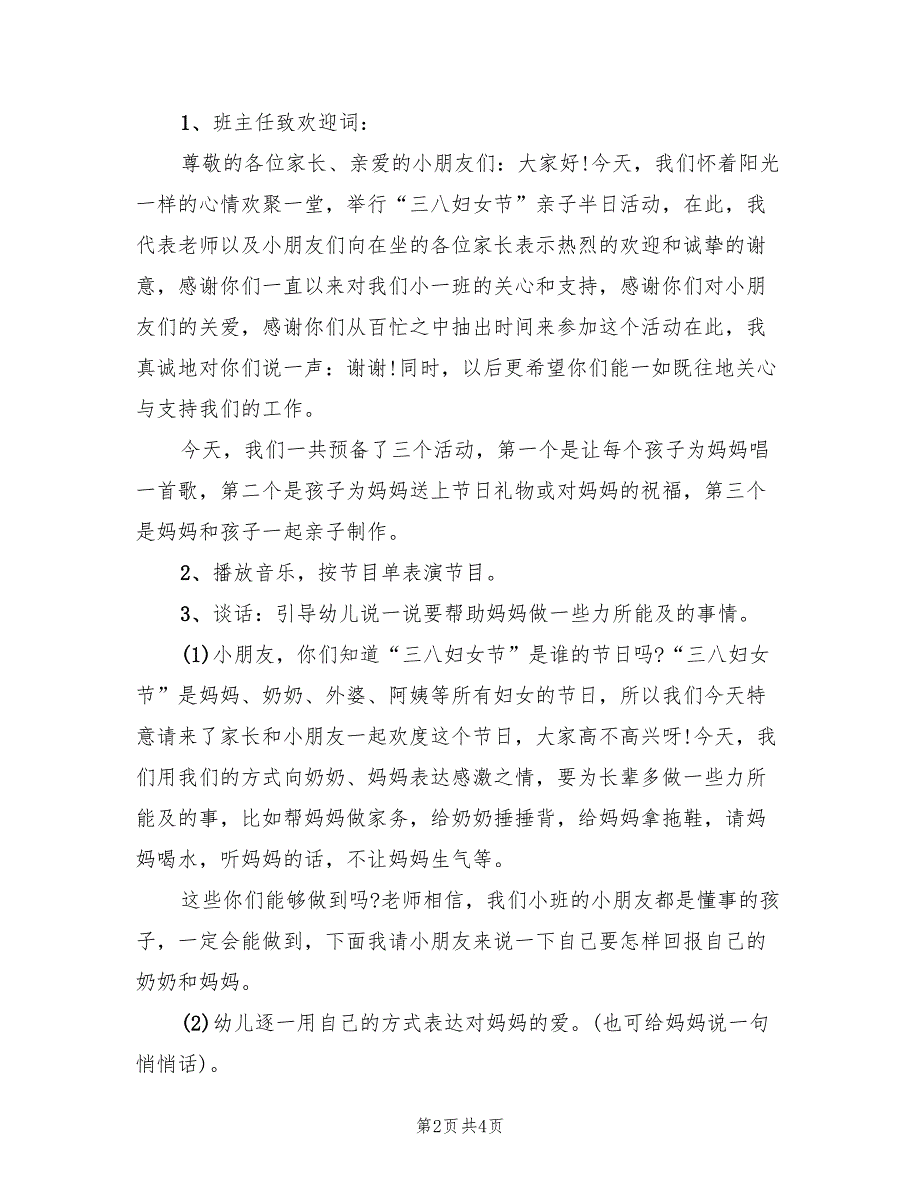 1、班主任致欢迎词：
尊敬的各位家长、亲爱的小朋友们：大家好!今天，我们怀着阳光
一样的心情欢聚一堂，举行“三八妇女节”亲子半日活动，在此，我
代表老师以及小朋友们向在坐的各位家长表示热烈的欢迎和诚挚的谢
意，感谢你们一直以来对我们小一班的关心和支持，感谢你们对小朋
友们的关爱，感谢你们从百忙之中抽出时间来参加这个活动在此，我
真诚地对你们说一声：谢谢!同时，以后更希望你们能一如既往地关心
与支持我们的工作。
今天，我们一共预备了三个活动，第一个是让每个孩子为妈妈唱
一首歌，第二个是孩子为妈妈送上节日礼物或对妈妈的祝福，第三个
是妈妈和孩子一起亲子制作。
2、播放音乐，按节目单表演节目。
3、谈话：引导幼儿说一说要帮助妈妈做一些力所能及的事情。
(1)小朋友，你们知道“三八妇女节”是谁的节日吗?“三八妇女
节”是妈妈、奶奶、外婆、阿姨等所有妇女的节日，所以我们今天特
意请来了家长和小朋友一起欢度这个节日，大家高不高兴呀!今天，我
们用我们的方式向奶奶、妈妈表达感激之情，要为长辈多做一些力所
能及的事，比如帮妈妈做家务，给奶奶捶捶背，给妈妈拿拖鞋，请妈
妈喝水，听妈妈的话，不让妈妈生气等。
这些你们能够做到吗?老师相信，我们小班的小朋友都是懂事的孩
子，一定会能做到，下面我请小朋友来说一下自己要怎样回报自己的
奶奶和妈妈。
(2)幼儿逐一用自己的方式表达对妈妈的爱。(也可给妈妈说一句
悄悄话)。
第2页 共4页